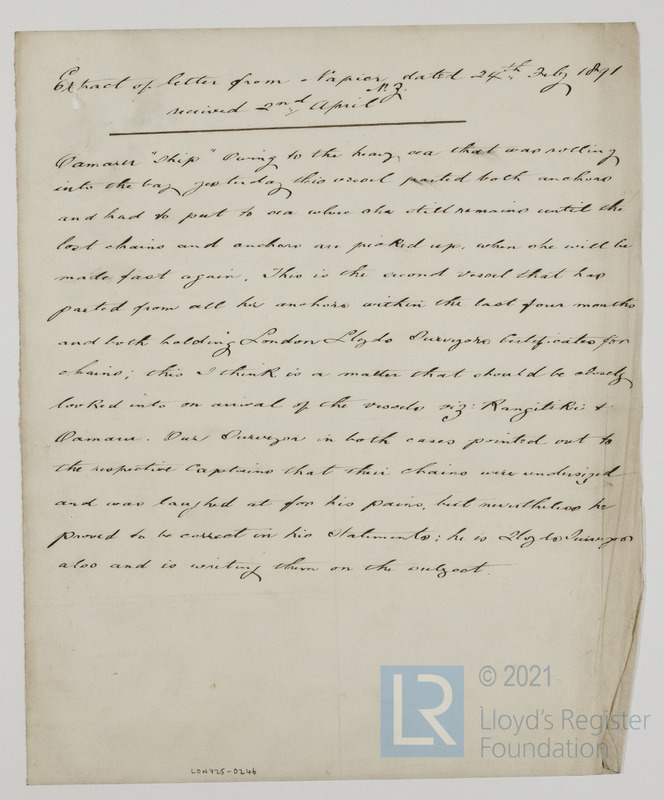 Extract of letter from Napier, dated 24th Feby 1891
N.Z.
received 2nd April
Oamaru "Ship" Owing to the heavy sea that was rolling
into the bay yesterday this vessel parted both anchors
and had to put to sea where she still remains until the
lost chains and anchors are picked up, when she will be
made fast again. This is the second vessel that has
parted from all her anchors within the last four months
and both holding London Lloyds Surveyors Certificates for
chains; this I think is a matter that should be closely
looked into on arrival of the vessels viz: Rangitiki &
Oamaru. Our Surveyor in both cases pointed out to
the respective Captains that their chains were undersized
and was laughed at for his pains, but nevertheless he
proved to be correct in his statements; he is Lloyds Surveyor
also and is writing them on the subject.
LR
© 2021
Lloyd's Register
Foundation
LON725-0246